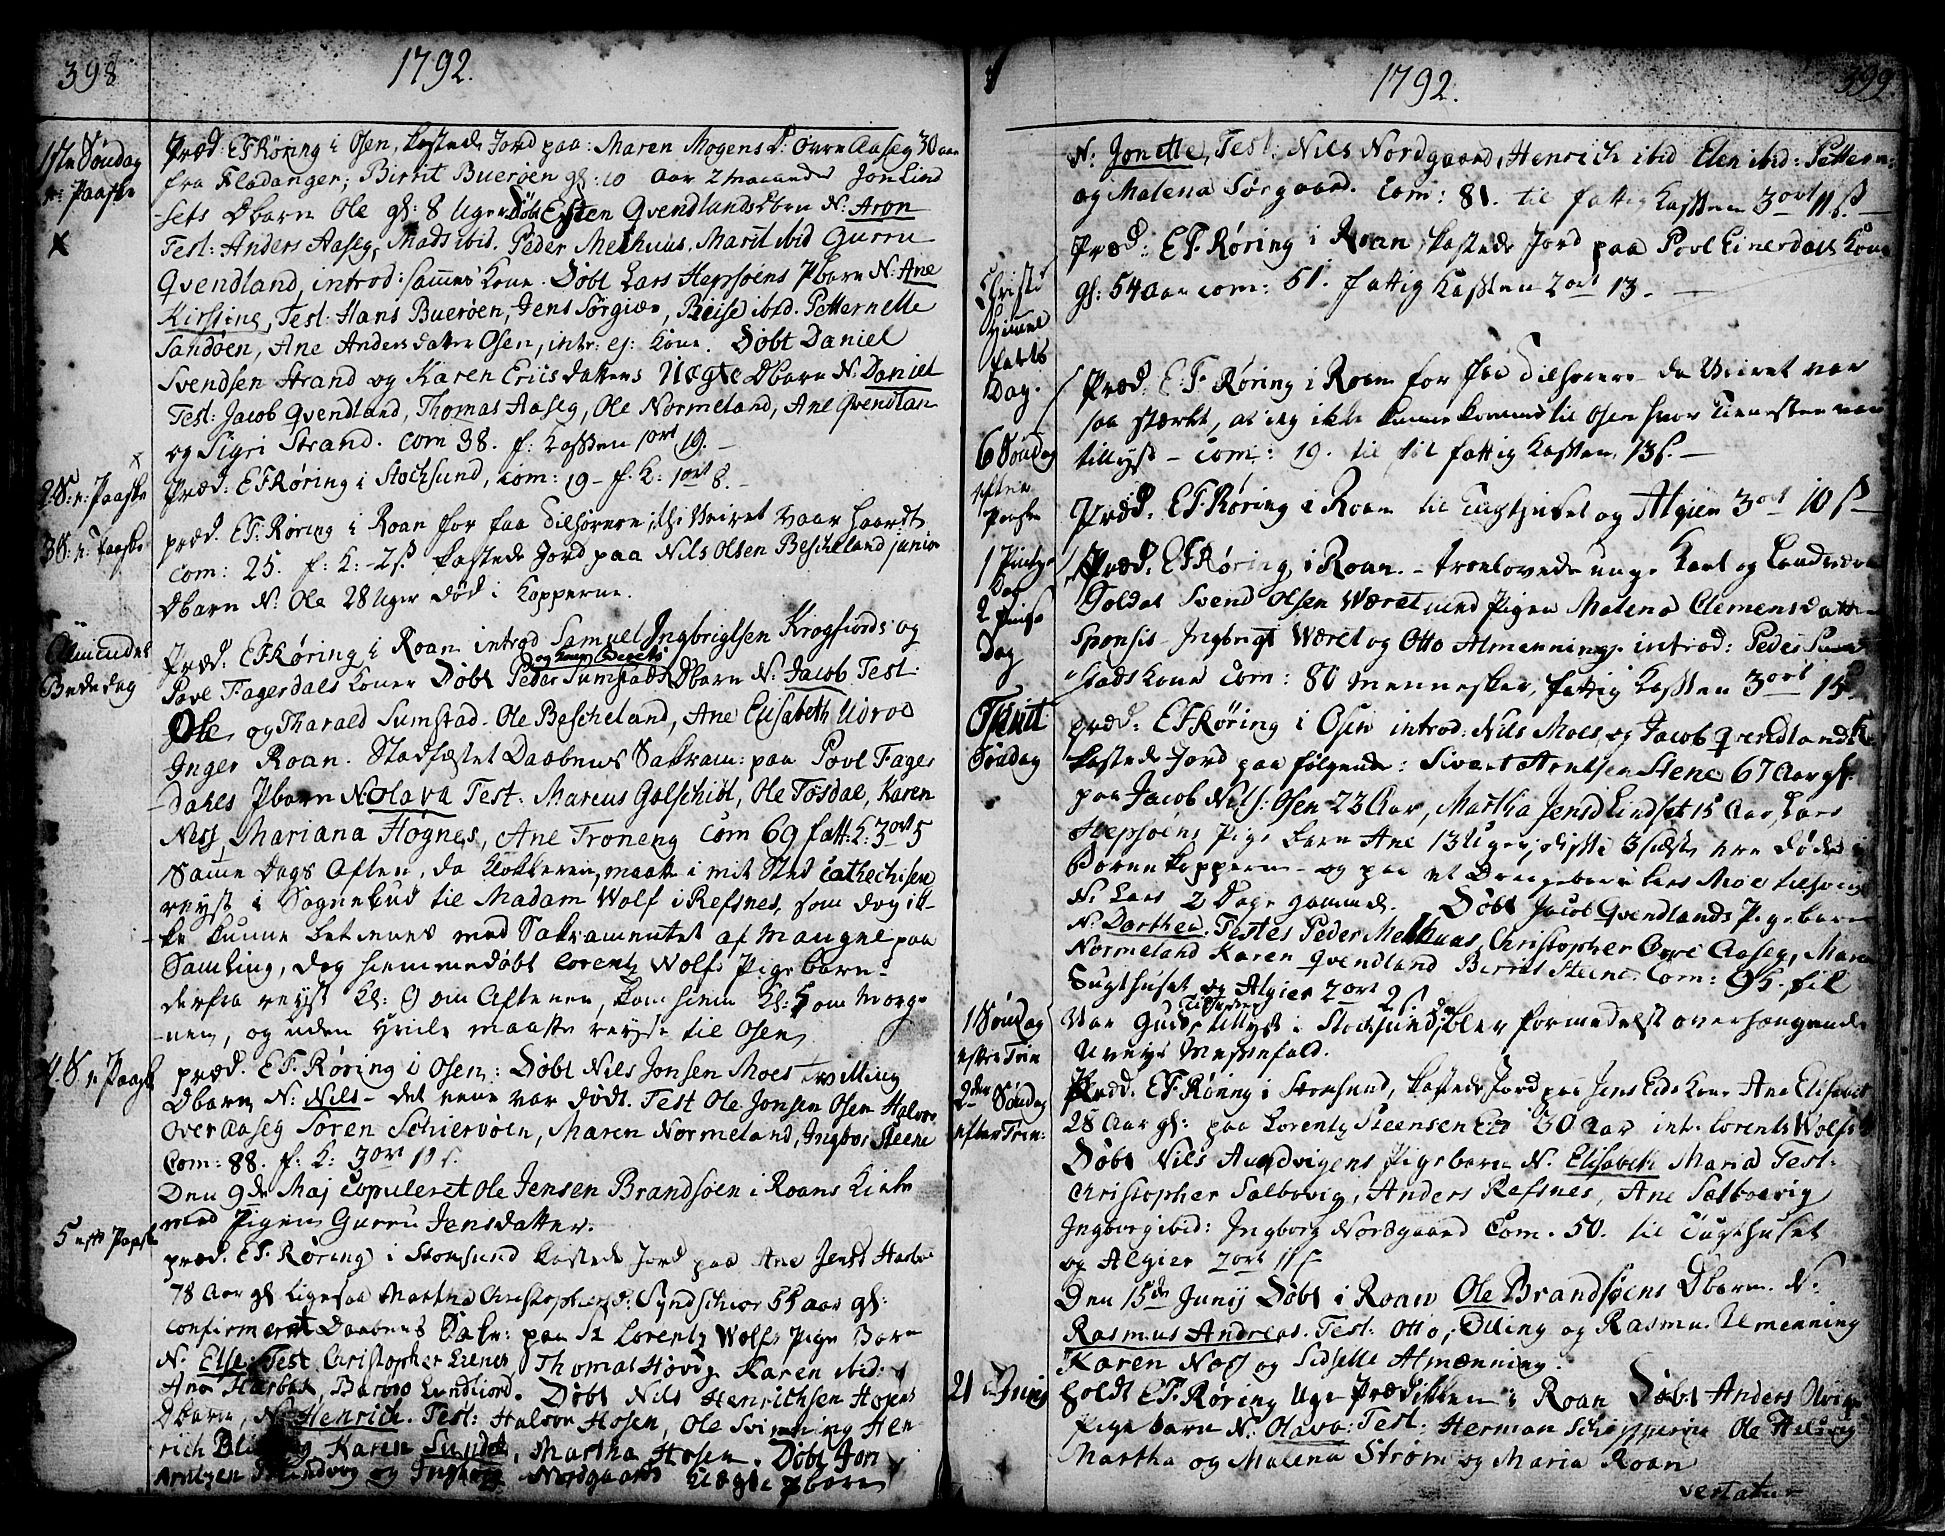 398
1792.
1ste Søndag
n: Paaske
Præd: E.F. Røring i Osen, kastede Jord paa: Maren Mogens D: Øvre Aaseg 30 aar
fra Fladanger; Birrit Buerøen gl: 10 Aar 2 maaneder Jon Lind
-sets Dbarn Ole gl: 8 Uger Døbt Esten Qvendlands Dbrn N: Aron
Test: Anders Aaseg, Mads ibid. Peder Melhuus, Marit ibid Gurru
Qvendland, introd: sammes Kone. Døbt Lars Hepsøens Pbarn N: Ane
Kirstine, Test: Hans Buerøen, Jens Sørgiær, ibid. Petternelle
Sandøen, Ane Andersdatter Osen, intr: ej: Kone. Døbt Daniel
Svendsen Strand og Karen Erics datters Uægte Dbarn N: Daniel
Test: Jacob Qvendland, Thomas Aaseg, Ole Normeland, Ane Qvendlan
og Sigri Strand. Com 38. f: Kassen 1ort 19. –
2. S. n: Paaske
Præd: E F Røring i Stocksund, Com: 19 – f. K: 1ort 8. –
3 S. n: Paaske
præd. E F: Røring i Roan for faa Tilhørere, thi Veiret vaar haardt
Com: 25. f: K: – 2 s. kastede Jord paa Nils Olsen Bescheland junior
Dbarn N: Ole 28 Uger død i Kopperne.
Almindel
Bededag
Præd: E F Røring i Roan introd Samuel Ingbrigtsen Krogfiords og
Povl Fagerdals Koner Døbt Peder Sumstads Dbarn N: Jacob Test:
Ole og Tharald Sumstad. Ole Bescheland, Ane Elisabeth Udroe
Inger Roan. Stadfæstet Daabens Sakram: paa Povl Fager
-dahls Pbarn N: Olava Test: Marcus Golschiøl, Ole Tøsdal, Karen
Ness, Mariana Høgnes, Ane Troneng Com 69 fatt: K: 3 ort 5
Samme Dags Aften, da Klokkeren maatte i mit Sted Cathechisere
reyst i Sognebud til Madam Wolf i Refsnes, som dog ik-
-ke kunne betienes med Sakramentet af Mangel paa
Samling, dog hiemmedøbt Lorentz Wolfs Pigebarn –
derfra reyst Kl: 9 om Aftenen, kom hiem Kl: 5 om Morge
-nen, og uden Hvile maatte reyse til Osen
4. S. n. Paaske
præd. E F. Røring i Osen: Døbt Nils Jonsen Moes Tvilling
Dbarn N: Nils – det eene var dødt. Test Ole Jonsen Osen Halvor
Over Aaseg Søren Schiervøen, Maren Normeland, Ingbor Steene
Com: 88. f. K: 3 ort
Den 9de Maj Copuleret Ole Jensen Brandsøen i Roans Kirke
med Pigen Gurru Jensdatter.
5 eft: Paaske
præd. E F. Røring i Stocksund kastede Jord paa Ane Jensd Harbo
78 Aar gl. Ligesaa Martha Christophersd: 55 aar gl:
Confirmeret Daabens Sakr: paa Lorentz Wolfs Pige Barn
N. Else Test Christopher Thomas Høvig Karen ibid:
Ane Harbak, Døbt Nils Henrichsen Hosens
Dbarn, N. Henrich. Test: Halvor Hosen, Ole Svinning Hen
rich Karen Sundet, Martha Hosen. Døbt Jon
Arntzen og Ingborg Nordgaards Uægte Pbarn
1792.
399
N: Jonette, Test: Nils Nordgaard, Henrich ibid Elen ibid: Pettern:
og Malena Sørgaard. Com: 81. til fattig Kassen 3 ort 11 s. –
Christi
Himmel
farts
Dag.
Præd: E F. Røring i Roan kastede Jord paa Povl Einerdals Kone
gl: 54 Aar com: 51. fattig Kassen 2 ort 13. –
6 Søndag
efter
Paaske
Præd: E. F. Røring i Roan for faa Tilhørere da Veiret var
saa stærkt, at jeg ikke kunne komme til Osen hvor Tienesten var
tillyst – Com: 19. til fattig Kassen 13 s. –
Præd. E.F. Røring i Roan til Tugthuset og Algier 3 ort 10 s –
1 Pintz
Dag
2 Pintz
Dag
Præd. E F Røring i Roan. – troelovede unge Karl og Landværn
Soldat Svend Olsen Wæret med Pigen Malena Clemensdatter
Sponsis – Ingbrigt Wæret og Otto Almenning. introd: Peder Sum
stads Kone Com: 80 Mennesker, fattig Kassen 3 ort 15
Trinit:
Søndag
præd: E F Røring i Osen introd: Nils Moes og Jacob Qvendlands K
kastede Jord paa følgende: Sivert Arntsen Stene 67 Aar gl:
paa Jacob Nils: Osen 23 Aar, Martha Jensd Lindset 15 Aar, Lars
Hepsøens Pige barn Ane 13 Uger, disse 3 sidste ere døde i
Børnekopperne – og paa et Drengebarn Lars Moe
N. Lars 2 Dage gammel. Døbt Jacob Qvendlands Pigebarn
N. Darthea: Testes Peder Melhuus, Christopher Øvre Aaseg, Maren
Normeland Karen Qvendland Berrit Stene. Com: 95. til
Tugthuset og Algier 2 ort 2 s.
1 Søndag
efter Trin
Var Guds Tieneste tillyst i Stocksund, blev formedelst overhængende
Uveyr Messefald.
2den Søndag
efter Trin:
Præd. E F. Rønng i Stocsund, kastede Jord paa Jens Eids Kone Ane Elisabet
28 Aar gl: paa Lorentz Steensen Eid 30 Aar int: Lorentz Wolfs K
Døbt Nils Aundvigens Pigebarn N. Elisabeth Maria Test:
Christopher Salbovig, Anders Refsnes, Ane Salboevig
Ingborg ibid: Ingborg Nordgaard Com. 50. til Tugthuset
og Algier 2 ort 11 s
Den 15de Junij Døbt i Roan Ole Brandsøens Dbarn N:
Rasmus Andreas. Test: Otto, Elling og Rasmu Almenning
Karen Næss og Sidselle Almænning.
21 Junij
holdt E F. Røring Uge Prædikken i Roan Døbt Anders
Pige barn N: Olava: Test: Herman Ole
Martha og Malena Strøm og Maria Roan
vertatur